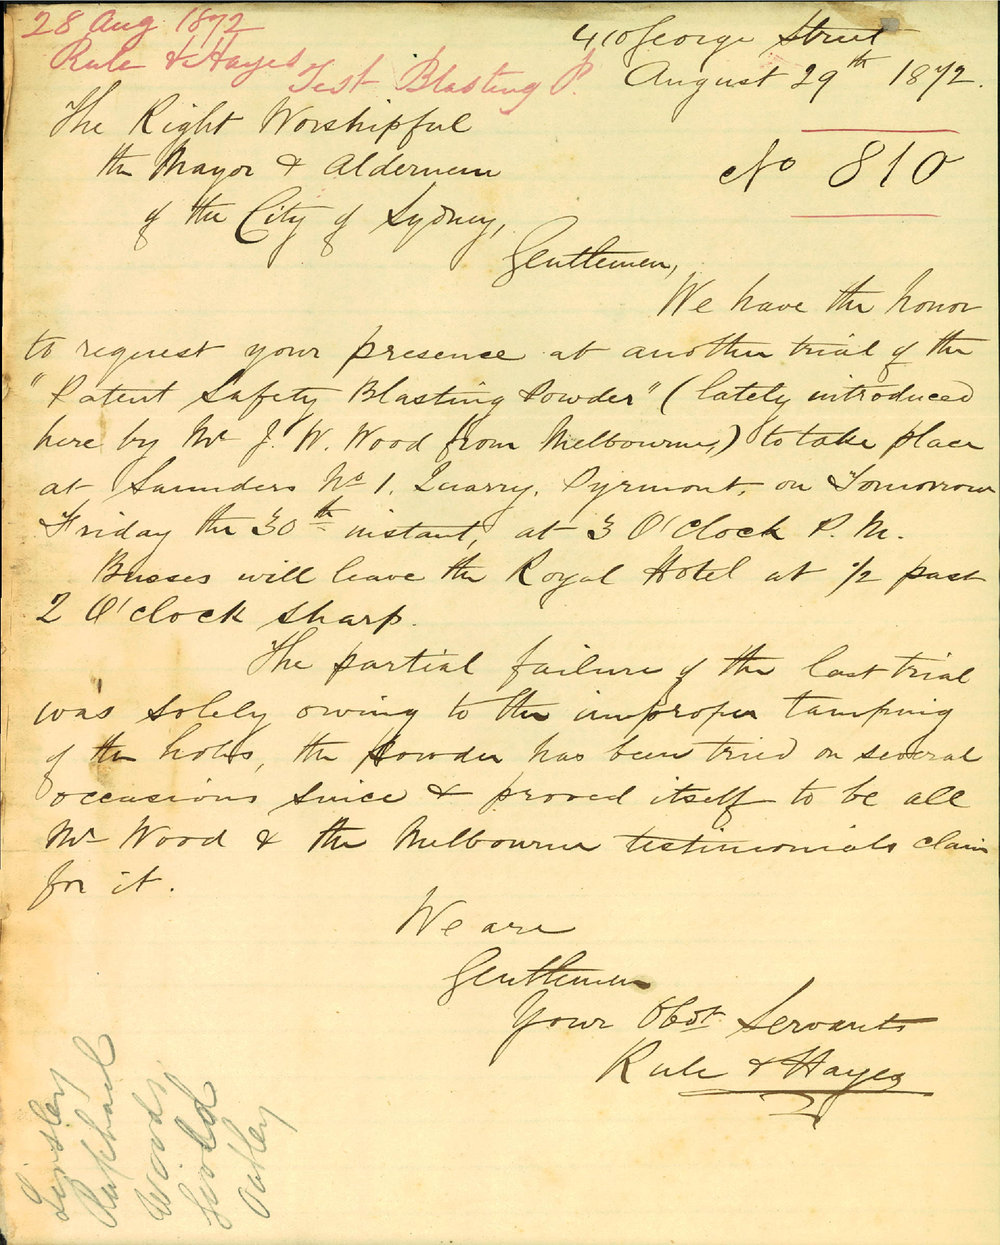 28 Aug 1872
Rule & Hayes
Test Blasting P.
410 George Street
August 29th 1872.
No 810
The Right Worshipful
the Mayor & Aldermen
of the City of Sydney,
Gentlemen,
We have the honor
to request your presence at another trial of the
"Patent Safety Blasting Powder" (lately introduced
here by Mr J. W. Wood from Melbourne,) to take place
at Saunders No 1. Quarry, Pyrmont, on Tomorrow
Friday the 30th instant, at 3 O'Clock P.M.
Busses will leave the Royal Hotel at 1/2 past
2 O'clock sharp.
The partial failure of the last trial
was solely owing to the improper tamping
of the holes, the powder has been tried on several
occasions since & proved itself to be all
Mr Wood & the Melbourne testimonials claim
for it.
We are
Gentlemen
Your Obdt. Servants
Rule & Hayes
Raphael
Woods
Oatley